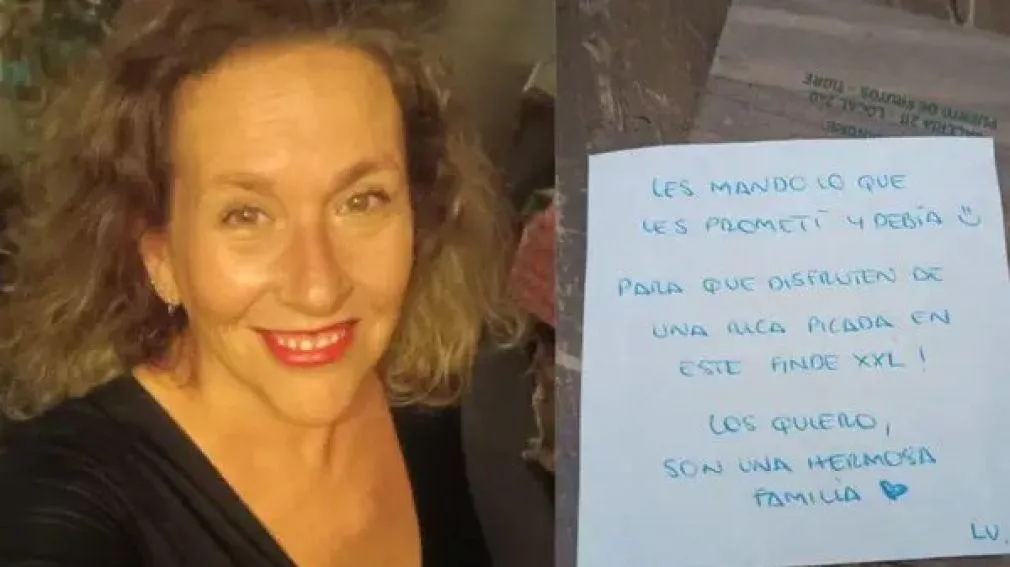 GALERIA 211 - LOCAL 240
PUERTO DE FRUTOS - TIGRE
LES MANDO LO QUE
LES PROMETÍ Y DEBÍA
PARA QUE DISFRUTEN DE
UNA RICA PICADA EN
ESTE FINDE XXL!
LOS QUIERO,
SON UNA HERMOSA
FAMILIA
LU.